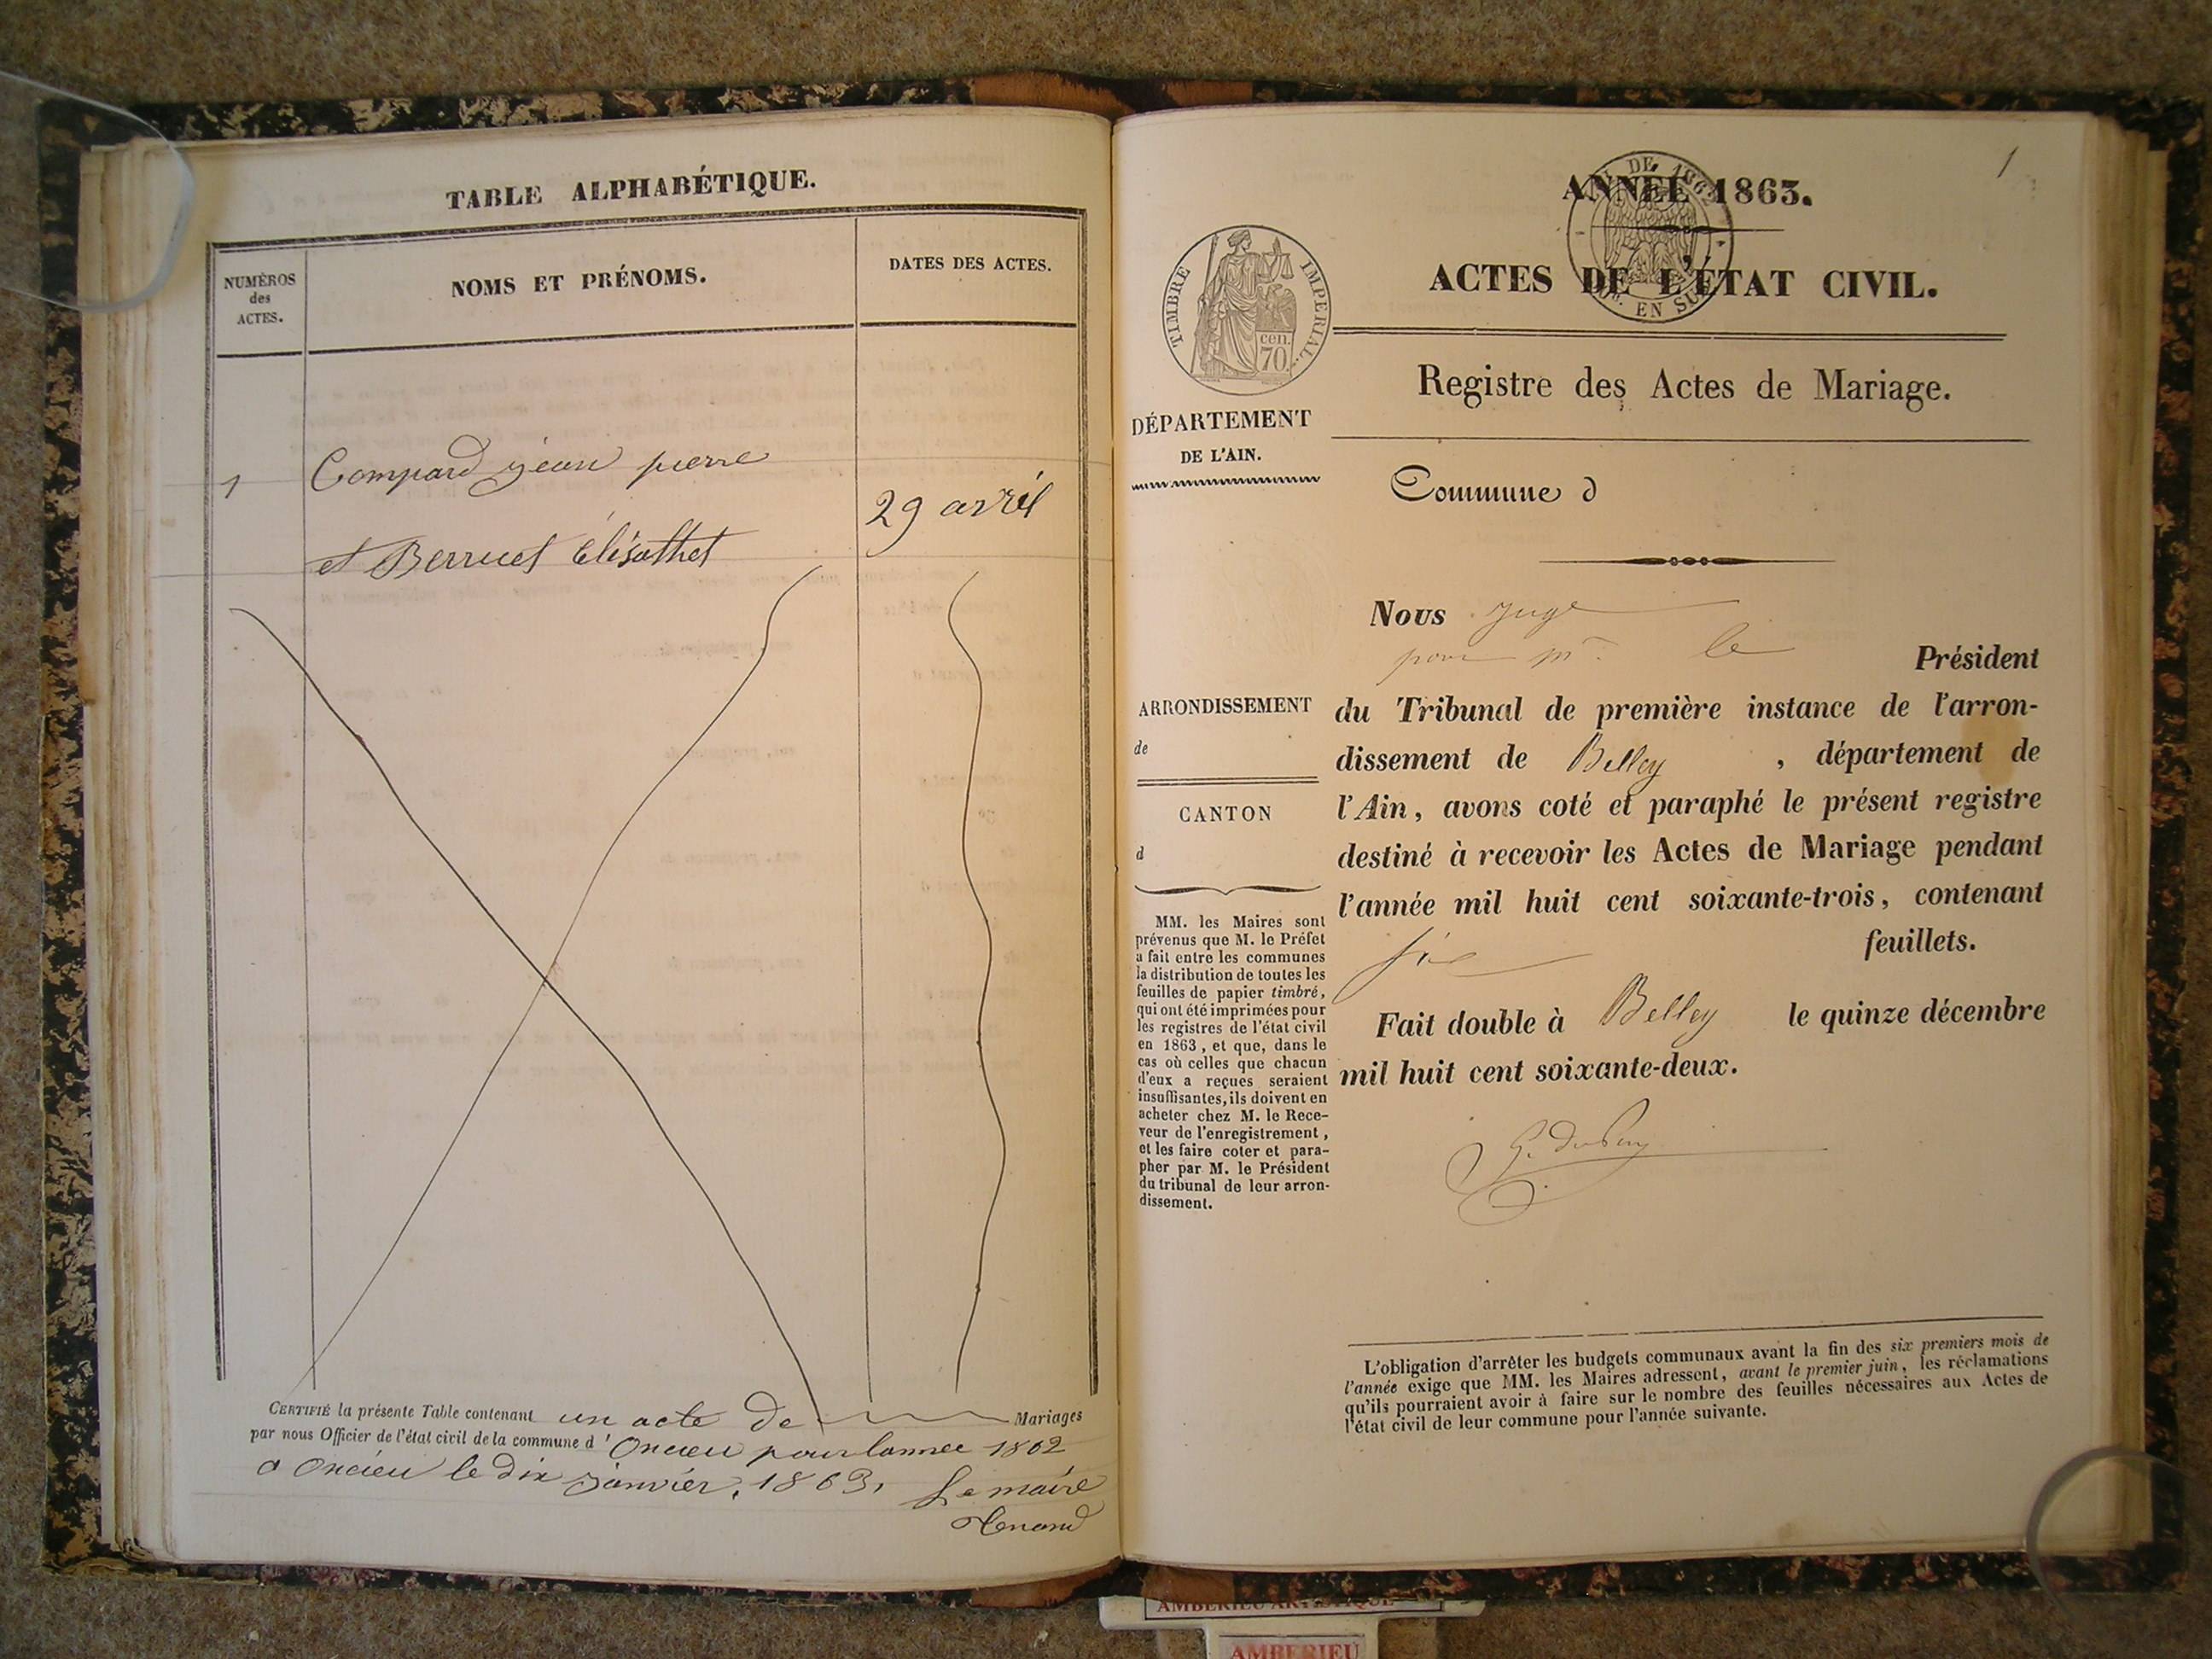 TABLE ALPHABÉTIQUE.
NUMÉROS
des
ACTES.
NOMS ET PRÉNOMS.
DATES DES ACTES.
1
Compard jean pierre
et Berruet Élisathet
29 avril
CERTIFIÉ la présente Table contenant un acte de Mariages
par nous Officier de l'état civil de la commune d'Oncieu pour lannee 1862
a oncieu le dix janvier, 1863, Le maire
1
ANNÉE 1863.
ACTES DE L'ÉTAT CIVIL.
TIMBRE IMPÉRIAL
cen.
70.
DE 186
EN SUS
Registre des Actes de Mariage.
DÉPARTEMENT
DE L'AIN.
Commune d
Nous juge
pour mr. le Président
ARRONDISSEMENT
de
CANTON
d
du Tribunal de première instance de l'arron-
dissement de Belley, département de
l'Ain, avons coté et paraphé le présent registre
destiné à recevoir les Actes de Mariage pendant
l'année mil huit cent soixante-trois, contenant
six feuillets.
Fait double à Belley le quinze décembre
mil huit cent soixante-deux.
MM. les Maires sont
prévenus que M. le Préfet
a fait entre les communes
la distribution de toutes les
feuilles de papier timbré,
qui ont été imprimées pour
les registres de l'état civil
en 1863, et que, dans le
cas où celles que chacun
d'eux a reçues seraient
insuffisantes, ils doivent en
acheter chez M. le Rece-
veur de l'enregistrement,
et les faire coter et para-
pher par M. le Président
du tribunal de leur arron-
dissement.
L'obligation d'arrêter les budgets communaux avant la fin des six premiers mois de
l'année exige que MM. les Maires adressent, avant le premier juin, les réclamations
qu'ils pourraient avoir à faire sur le nombre des feuilles nécessaires aux Actes de
l'état civil de leur commune pour l'année suivante.
AMBERIEU ARTISTIQUE
AMBERIEU